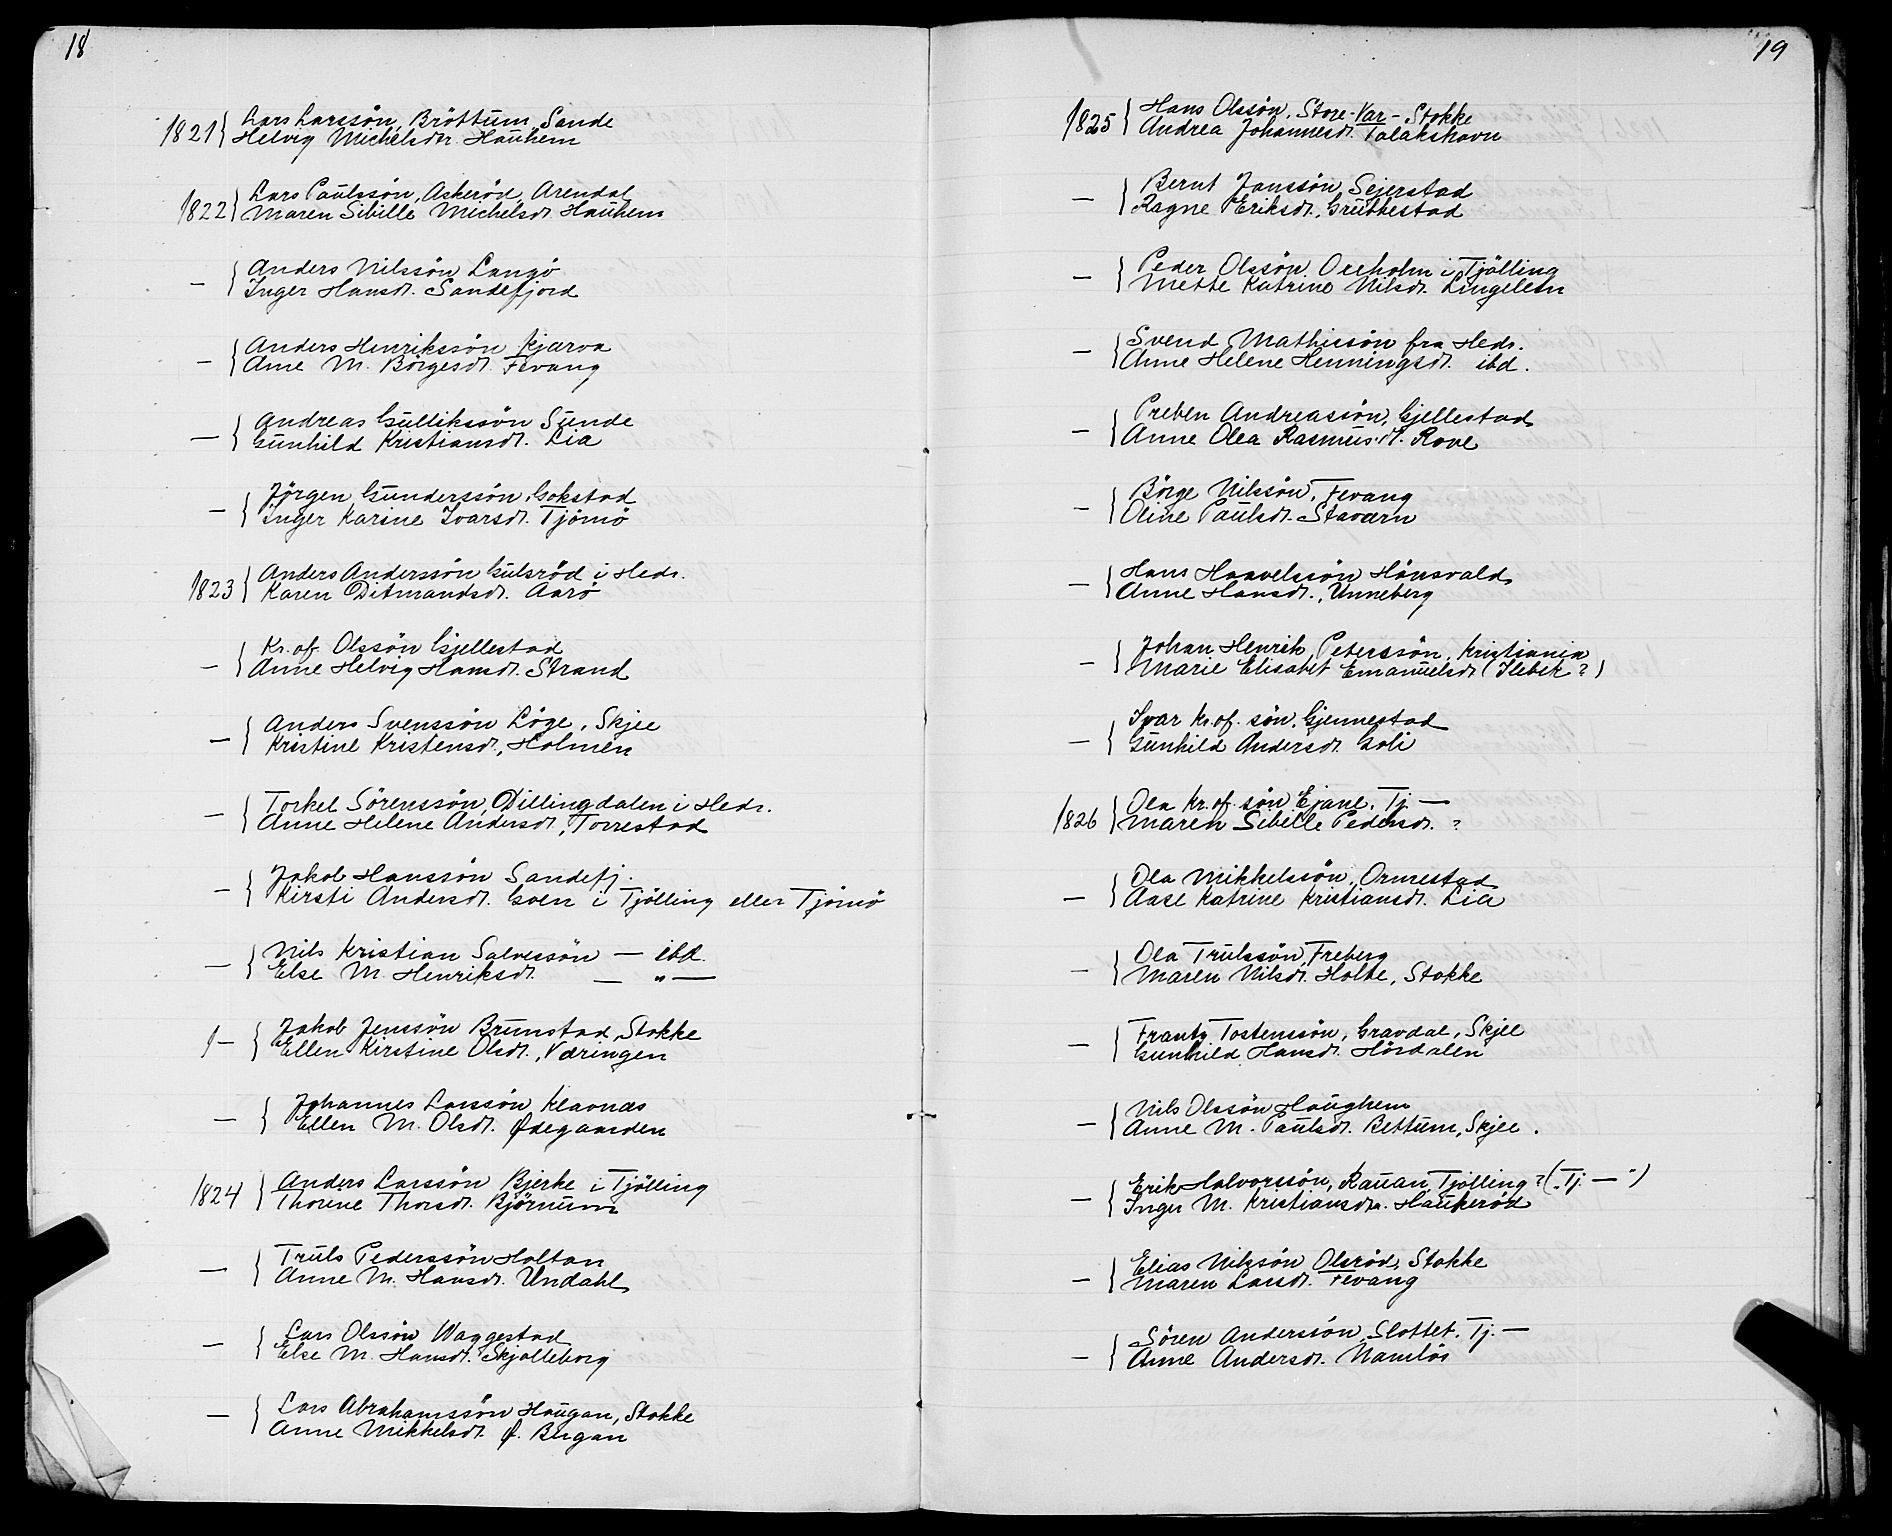 18
1821 { Lars Larssön, Bröttum, Sande
Helvig Michelsdtr. Hauhem
1822 { Lars Paulssön, Askeröd, Arendal
Maren Sibille Michelsdt. Hauhem
— { Anders Nilssön Langö
Inger Hansdt. Sandefjord
— { Anders Henrikssön Kjærra
Anne M. Börgesdt. Fevang
— { Andreas Gullikssön Sunde
Gunhild Kristiansdt. Lia
— { Jörgen Gunderssön, Gokstad
Inger Karine Ivarsdt. Tjömö
1823 { Anders Anderssön Gulsröd i Hedr.
Karen Ditmandsdt. Aarö
— { Kr.of. Olssön Gjellestad
Anne Helvig Hansdt. Strand
— { Anders Svenssön Löge, Skjee
Kristine Kristensdt., Holmen
— { Torkel Sörenssön, Dillingdalen i Hedr.
Anne Helene Andersdt., Torrestad
— { Jakob Hanssön Sandefj.
Kirsti Andersdt. Goen i Tjölling eller Tjömö
— { Nils Kristian Salvessön — ibd.
Else M. Henriksdt. — „ —
— { Jakob Jenssön Brunstad, Stokke
Ellen Kirstine Olsdt., Væringen
— { Johannes Larssön Klavnæs
Ellen M. Olsdt. Ødegaarden
1824 { Anders Larssön Bjerke i Tjölling
Thorine Thorsdt. Björnum
— { Truls Pederssön Holtan
Anne M. Hansdt. Undahl
— { Lars Olssön Waggestad
Else M. Hansdt. Skjolleborg
— { Lars Abrahamssön Haugan, Stokke
Anne Mikkelsdt. Ø. Bugan
19
1825 { Hans Olssön, Store-Var - Stokke
Andrea Johannesdt. Talakshavn
— { Bernt Janssön Sejerstad
Ragne Eriksdt., Grüttestad
— { Peder Olssön Oreholm i Tjölling
Mette Katrine Nilsdt. Lingelem
— { Svend Mathissön fra Hedr.
Anne Helene Henningsdt. ibd.
— { Preben Andreassön, Gjellestad
Anne Olea Rasmusdt. Rove
— { Börge Nilssön, Fevang
Oline Paulsdt. Staværn
— { Hans Haavelssön Hönsvald
Anne Hansdt., Unneberg
— { Johan Henrik Peterssön, Kristiania
Marie Elisabet Emanuelsdt. (Ilebek?)
— { Ivar Kr.of. sön, Gjennestad
Gunhild Andersdt. Goli
1826 { Ola Kr.of. sön Ejane, Tj. —
Maren Sibille Pedersdt. ?
— { Ola Mikkelssön, Ormestad
Aase Katrine Kristiansdt. Lia
— { Ola Trulssön, Freberg
Maren Nilsdt. Holte, Stokke
— { Frantz Tostenssön, Gravdal, Skjee
Gunhild Hansdt. Hösdalen
— { Nils Olssön Haughem
Anne M. Paulsdt. Bettum, Skjee.
— { Erik Halvorssön, Rauan Tjölling? („Tj. — ")
Inger M. Kristiansdtr. Haukeröd
— { Elias Nilssön Olsröd, Stokke
Maren Larsdt. Fevang
— { Sören Anderssön, Slottet, Tj. —
Anne Andersdt. Namlös